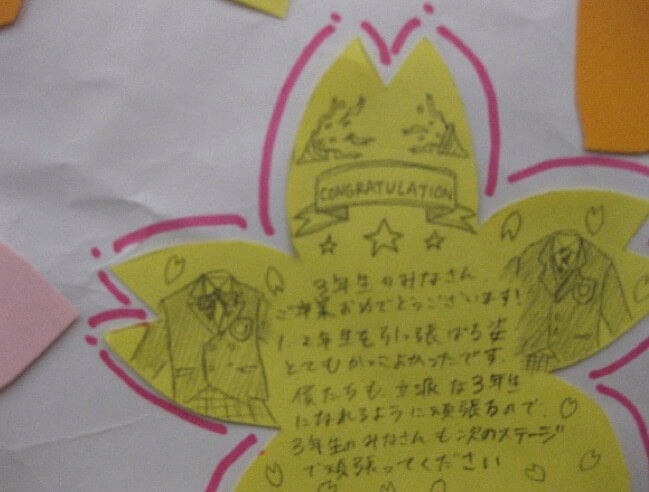 CONGRATULATION
3年生のみなさん、
ご卒業おめでとうございます!
1、2年生を引っ張ばる姿
とてもかっこよかったです。
僕たちも、立派な3年生
になれるように頑張るので、
3年生のみなさんも次のステージ
で頑張ってください